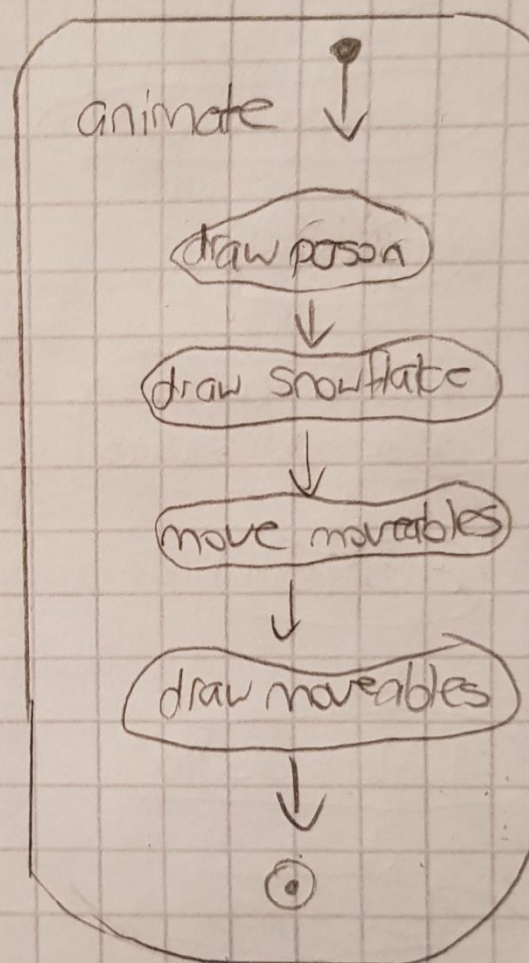 animate
draw poson
draw snowflake
move moveables
draw moveables